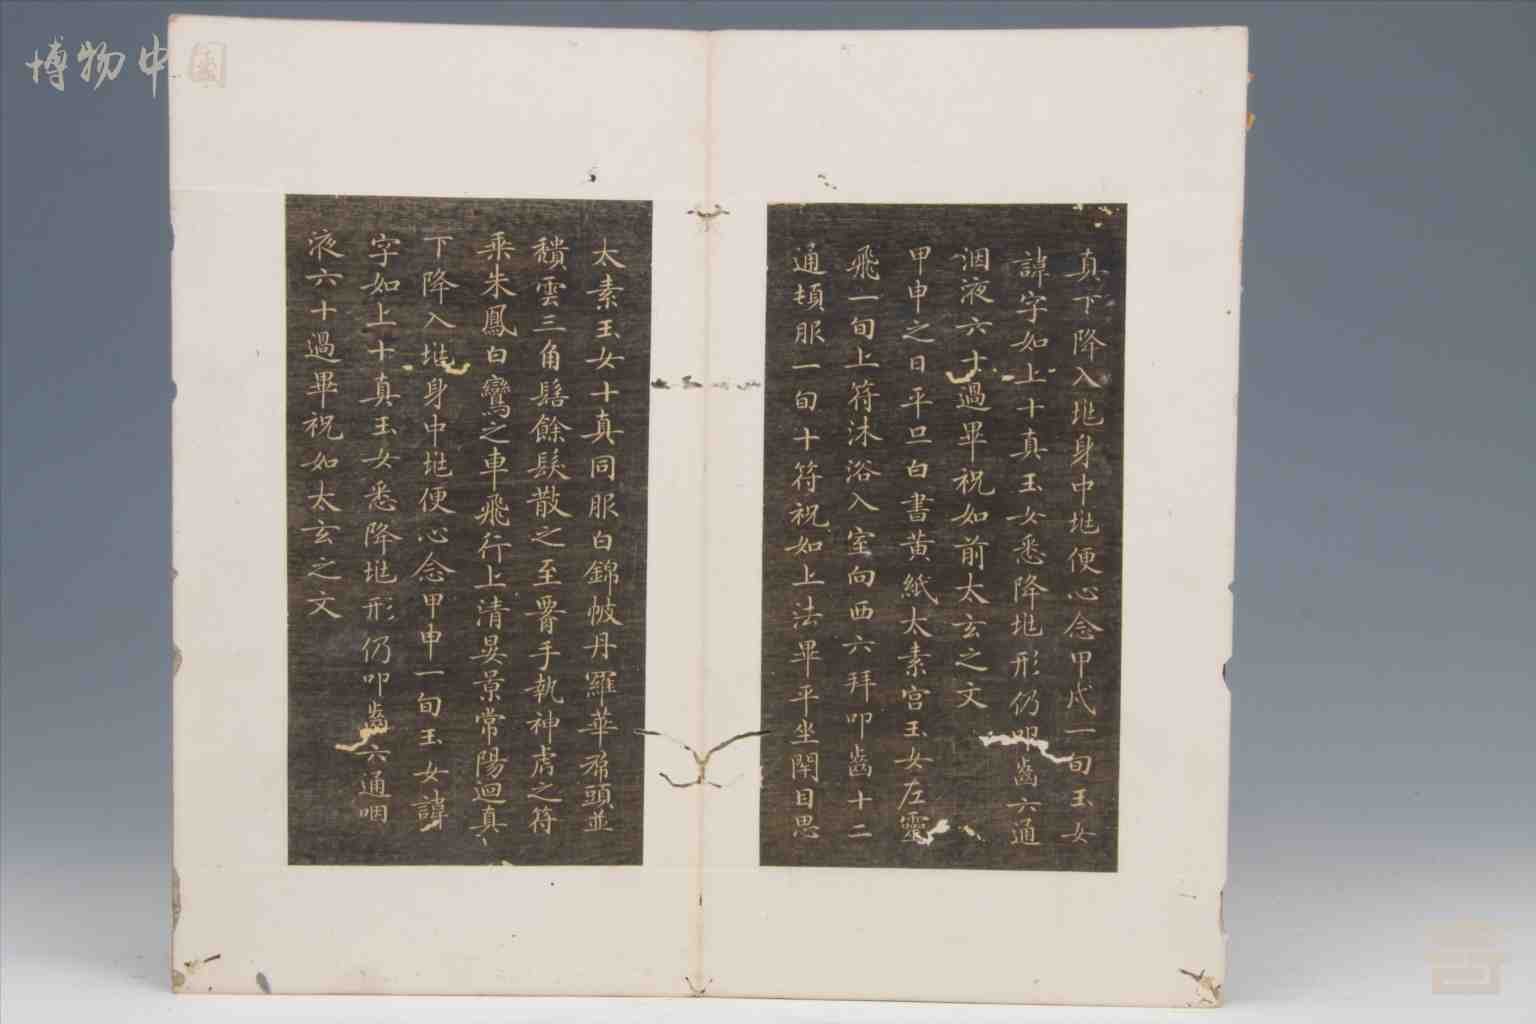 真下降入兆身中兆便心念甲戌一旬玉女
諱字如上十真玉女悉降兆形仍叩齒六通
咽液六十過畢祝如前太玄之文
甲申之日平旦白書黃紙太素宮玉女左靈
飛一旬上符沐浴入室向西六拜叩齒十二
通頓服一旬十符祝如上法畢平坐閉目思
太素玉女十真同服白錦帔丹羅華帬頭並
穨雲三角髻餘髮散之至腰手執神虎之符
乘朱鳳白鸞之車飛行上清晏景常陽迴真
下降入兆身中兆便心念甲申一旬玉女諱
字如上十真玉女悉降兆形仍叩齒六通咽
液六十過畢祝如太玄之文
博物中國